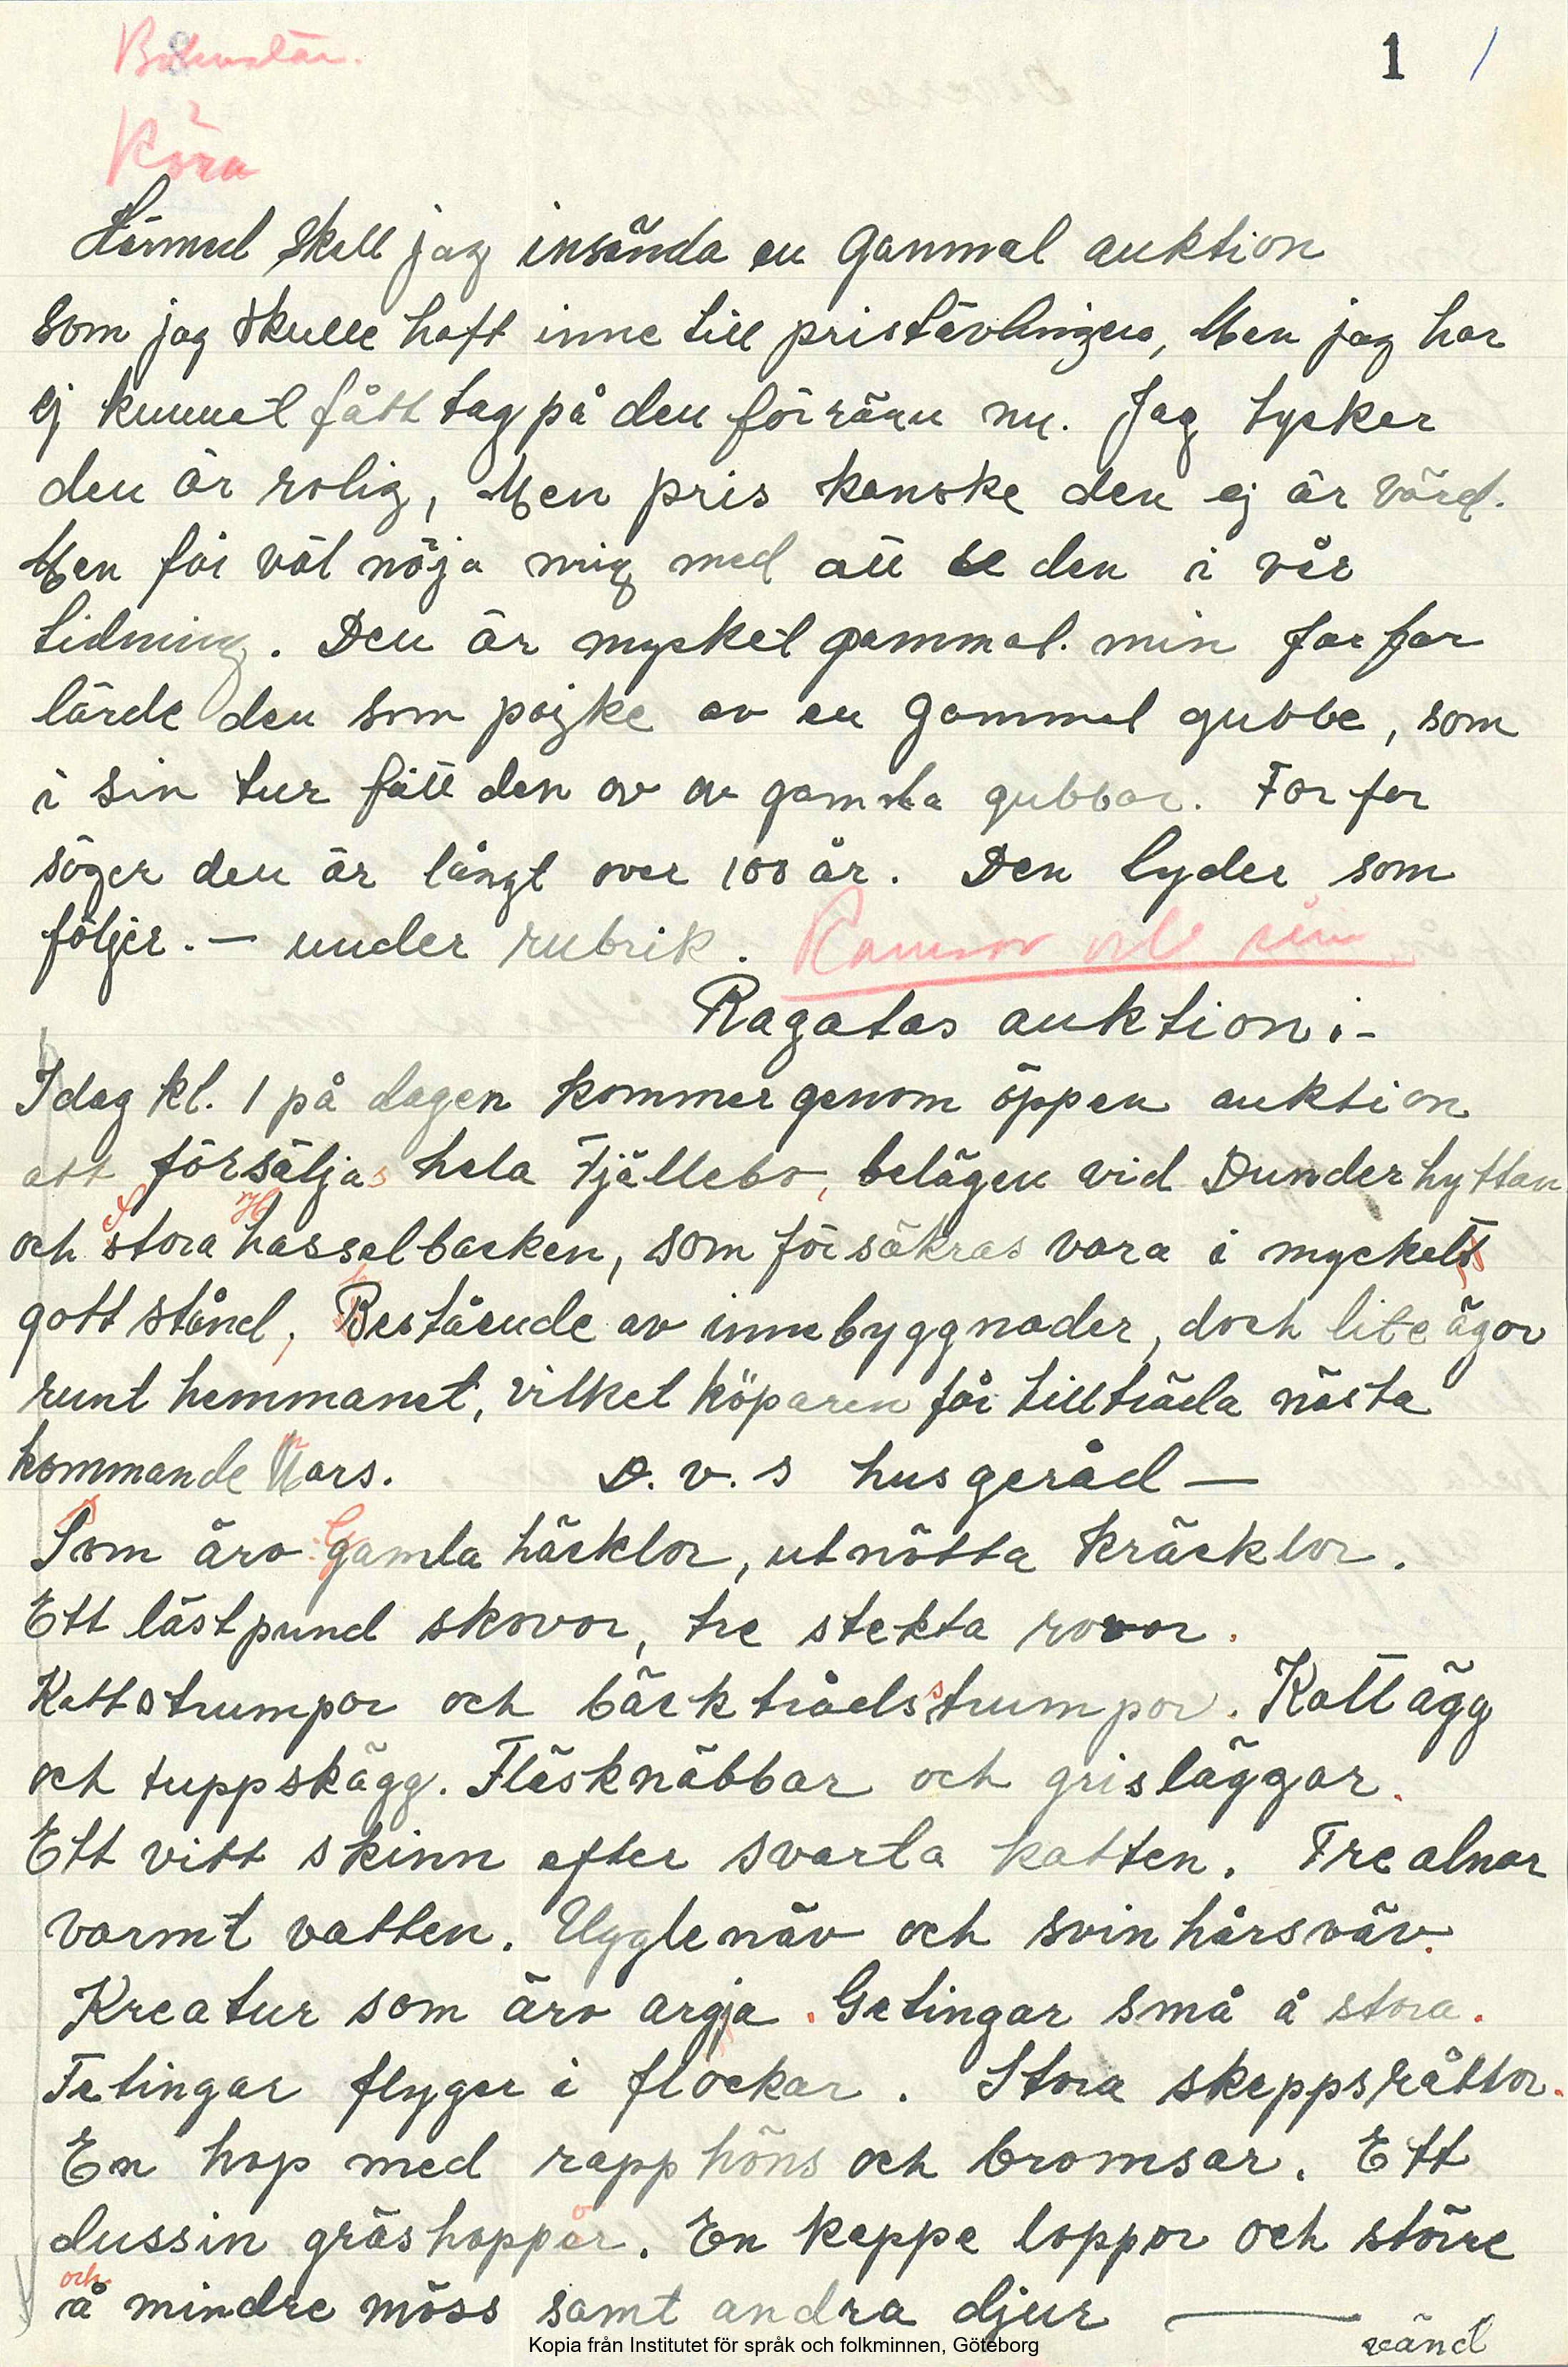 1 /
Köra
Härmed skall jag insända en gammal auktion
som jag skulle haft inne till pristävlingen, Men jag har
ej kunnat fått tag på den förrän nu. Jag tycker
den är rolig, Men pris kanske den ej är värd.
Men får väl nöja mig med att se den i vår
tidning. Den är myckel gammal. min farfar
lärde den som pojke av en gammal gubbe, som
i sin tur fått den av av gamla gubbar. Farfar
säger den är långt over 100 år. Den lyder som
följer. — under rubrik. Ramsor och rim
Ragatas auktion i-
Idag kl. 1 på dagen kommer genom öppen auktion
att försäljas hela Fjällebo, belägen vid Dunderhyttan
och Stora Hasselbacken, som försäkras vara i mycket
gott stånd, Bestående av innebyggnader, doch lite ägor
runt hemmanet, vilket köparen får tillträda nästa
kommande Mars. D. v. s husgeråd —
Som äro Gamla häcklor, utnötta kräcklor.
Ett lästpund skovor, tre stekta rovor.
Kattstrumpor och bäcktrådsstrumpor. Kattägg
och tuppskägg. Fläsknäbbar och grisläggar.
Ett vitt skinn efter svarta katten. Tre alnar
varmt vatten. Ugglenäv och svinhårsväv.
Kreatur som äro argja. Getingar små å stora.
Tetingar flyger i flockar. Stora skeppsråttor.
En hop med rapphöns och bromsar. Ett
dussin gräshoppor. En kappe loppor och större
och
å mindre möss samt andra djur —
vänd
Kopia från Institutet för språk och folkminnen, Göteborg